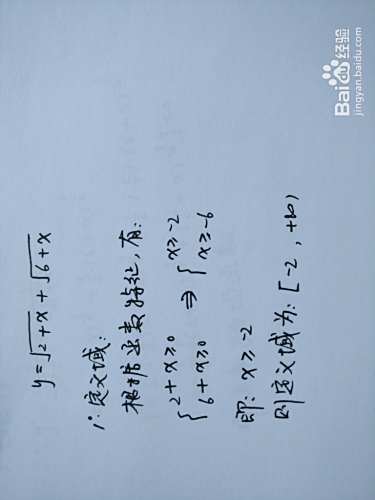 y=√2+x+√6+x
1: 定义域:
根据函数特征,有:
{2+x≥0 6+x≥0 ⇒ {x≥-2 x≥-6
即: x≥-2
则定义域为: [-2, +∞)
Baidu经验
jingyan.baidu.com